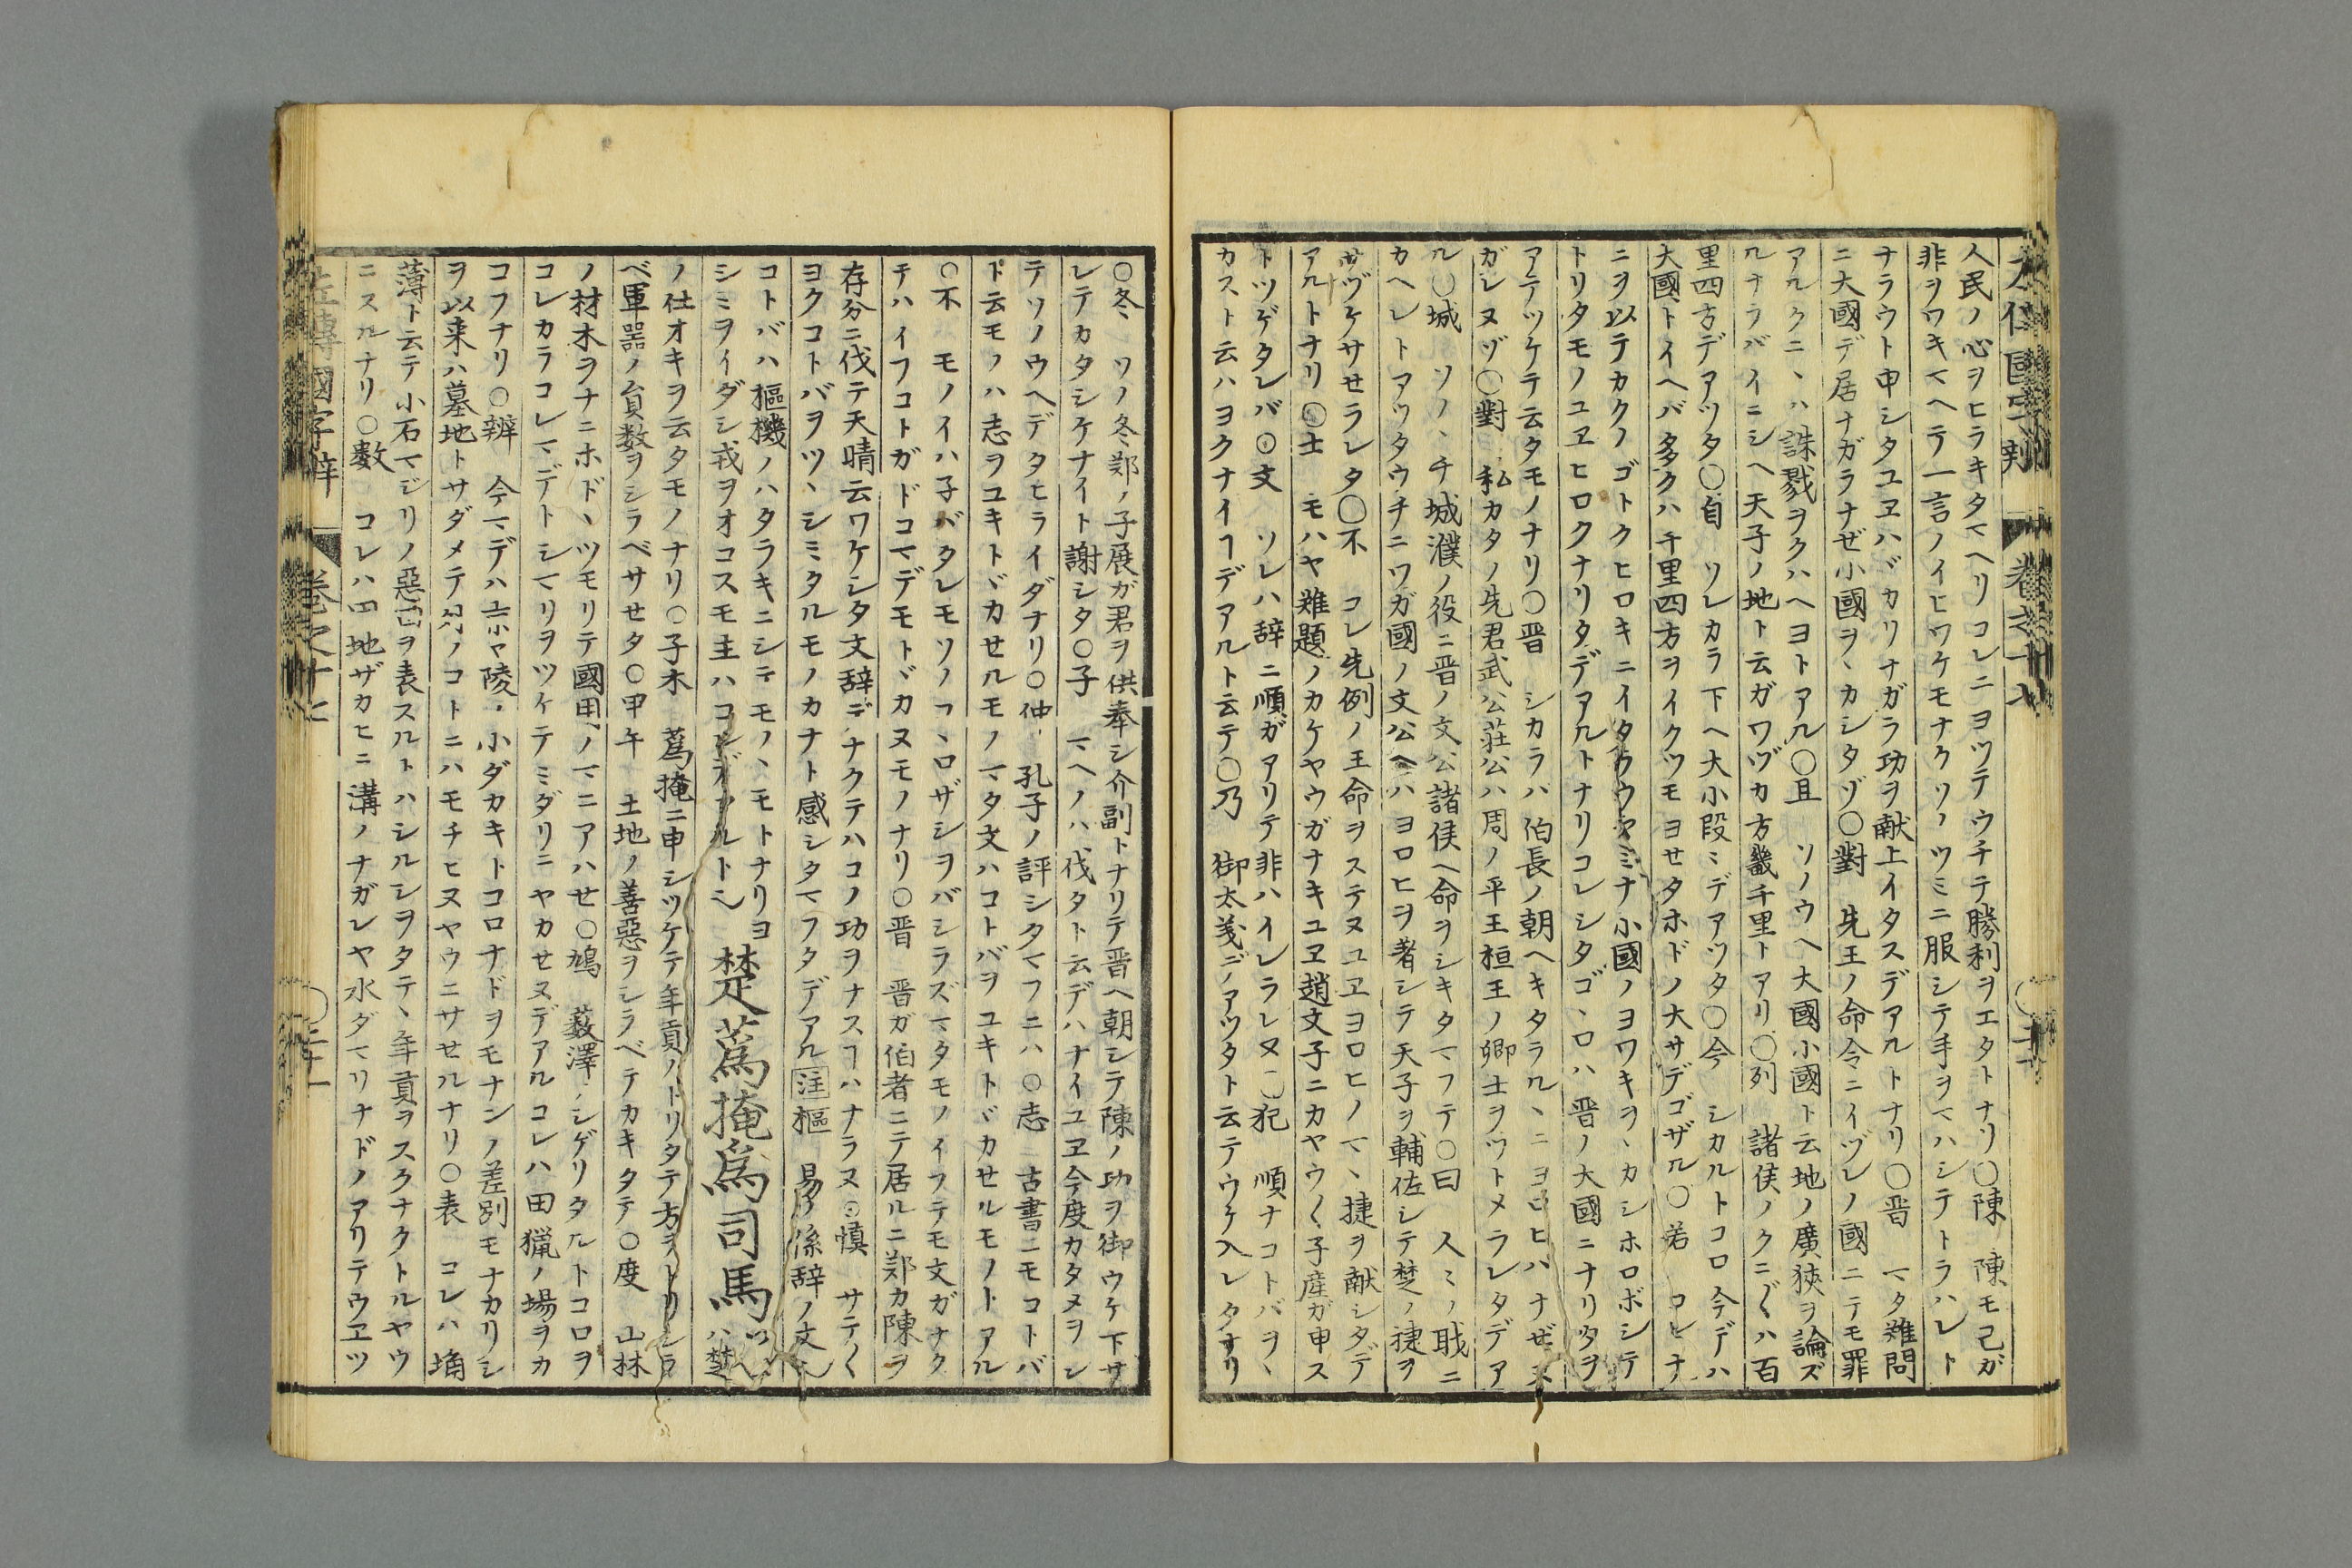 人民ノ心ヲヒラキタマヘリコレニヨツテウチテ勝利ヲエタトナリ○陳 陳モ己ガ
非ヲワキマヘテ一言ノイヒワケモナクソノツミニ服シテ手ヲマハシテトラハレト
ナラウト申シタユヱハバカリナガラ功ヲ献上イタスデアルトナリ○晋 マタ難問
ニ大國デ居ナガラナゼ小國ヲヽカシタゾ○對 先王ノ命令ニイヅレノ國ニテモ罪
アルクニヽハ誅戮ヲクハヘヨトアル○且 ソノウヘ大國小國ト云地ノ廣狹ヲ論ズ
ルナラバイニシヘ天子ノ地ト云ガワヅカ方畿千里トアリ○列 諸侯ノクニ〴〵ハ百
里四方デアツタ○自 ソレカラ下ヘ大小段ミデアツタ○今 シカルトコロ今デハ
大國トイヘバ多クハ千里四方ヲイクツモヨセタホドノ大サデゴザル○若 コレナ
ニヲ以テカクノゴトクヒロキニイタラウヤミナ小國ノヨワキヲヽカシホロボシテ
トリタモノユヱヒロクナリタデアルトナリコレシタゴヽロハ晋ノ大國ニナリタヲ
アテツケテ云タモノナリ○晋 シカラハ伯長ノ朝ヘキタラルヽニヨロヒハナゼヌ
ガレヌゾ○對 私カタノ先君武公莊公ハ周ノ平王桓王ノ卿士ヲツトメラレタデア
ル○城 ソノヽチ城濮ノ役ニ晋ノ文公諸侯ヘ命ヲシキタマフテ○曰 人ミノ職ニ
カヘレトアツタウチニワガ國ノ文公ヘハヨロヒヲ著シテ天子ヲ輔佐シテ楚ノ捷ヲ
サヅケサセラレタ○不 コレ先例ノ王命ヲステヌユヱヨロヒノマヽ捷ヲ献シタデ
アルトナリ○士 モハヤ難題ノカケヤウガナキユヱ趙文子ニカヤウ〳〵子産ガ申ス
トツゲタレバ○文 ソレハ辞ニ順ガアリテ非ハイレラレヌ○犯 順ナコトバヲヽ
カスト云ハヨクナイヿデアルト云テ○乃 御太義デアツタト云テウケ入レタナリ
○冬 ソノ冬鄭ノ子展ガ君ヲ供奉シ介副トナリテ晋ヘ朝シテ陳ノ功ヲ御ウケ下サ
レテカタシケナイト謝シタ○子 マヘノハ伐タト云デハナイユヱ今度カタメヲシ
テソノウヘデタヒライダナリ○仲 孔子ノ評シタマフニハ○志 古書ニモコトバ
ト云モノハ志ヲユキトヾカセルモノマタ文ハコトバヲユキトヾカセルモノトアル
○不 モノイハ子バタレモソノコヽロザシヲバシラズマタモノイフテモ文ガナク
テハイフコトガドコマデモトヾカヌモノナリ○晋 晋ガ伯者ニテ居ルニ鄭カ陳ヲ
存分ニ伐テ天晴云ワケシタ文辞デナクテハコノ功ヲナスヿハナラヌ○慎 サテ〳〵
ヨクコトバヲツヽシミタルモノカナト感シタマフタデアル注樞 易ノ係辞ノ文也
コトバハ樞機ノハタラキニシテモノヽモトナリヨ
シミヲイダシ戎ヲオコスモ主ハコレデアルトヘ 楚蒍掩爲司馬 ハ楚
ノ仕オキヲ云タモノナリ○子木 蒍掩ニ申シツケテ年貢ノトリタテ方ヲトリシラ
ベ軍噐ノ員数ヲシラベサセタ○甲午 土地ノ善惡ヲシラベテカキタテ○度 山林
ノ材木ヲナニホドヽツモリテ國用ノマニアハセ○鳩 薮澤ノシゲリタルトコロヲ
コレカラコレマデトシマリヲツケテミダリニヤカセヌデアルコレハ田猟ノ場ヲカ
コフナリ○辨 今マデハ京ヤ陵ノ小ダカキトコロナドヲモナンノ差別モナカリシ
ヲ以来ハ墓地トサダメテ外ノコトニハモチヒヌヤウニサセルナリ○表 コレハ埆
薄ト云テ小石マジリノ惡田ヲ表スルトハシルシヲタテヽ年貢ヲスクナクトルヤウ
ニスルナリ○數 コレハ凹地ザカヒニ溝ノナガレヤ水ダマリナドノアリテウヱツ
左傳國字辨 卷之十七 ○二十一